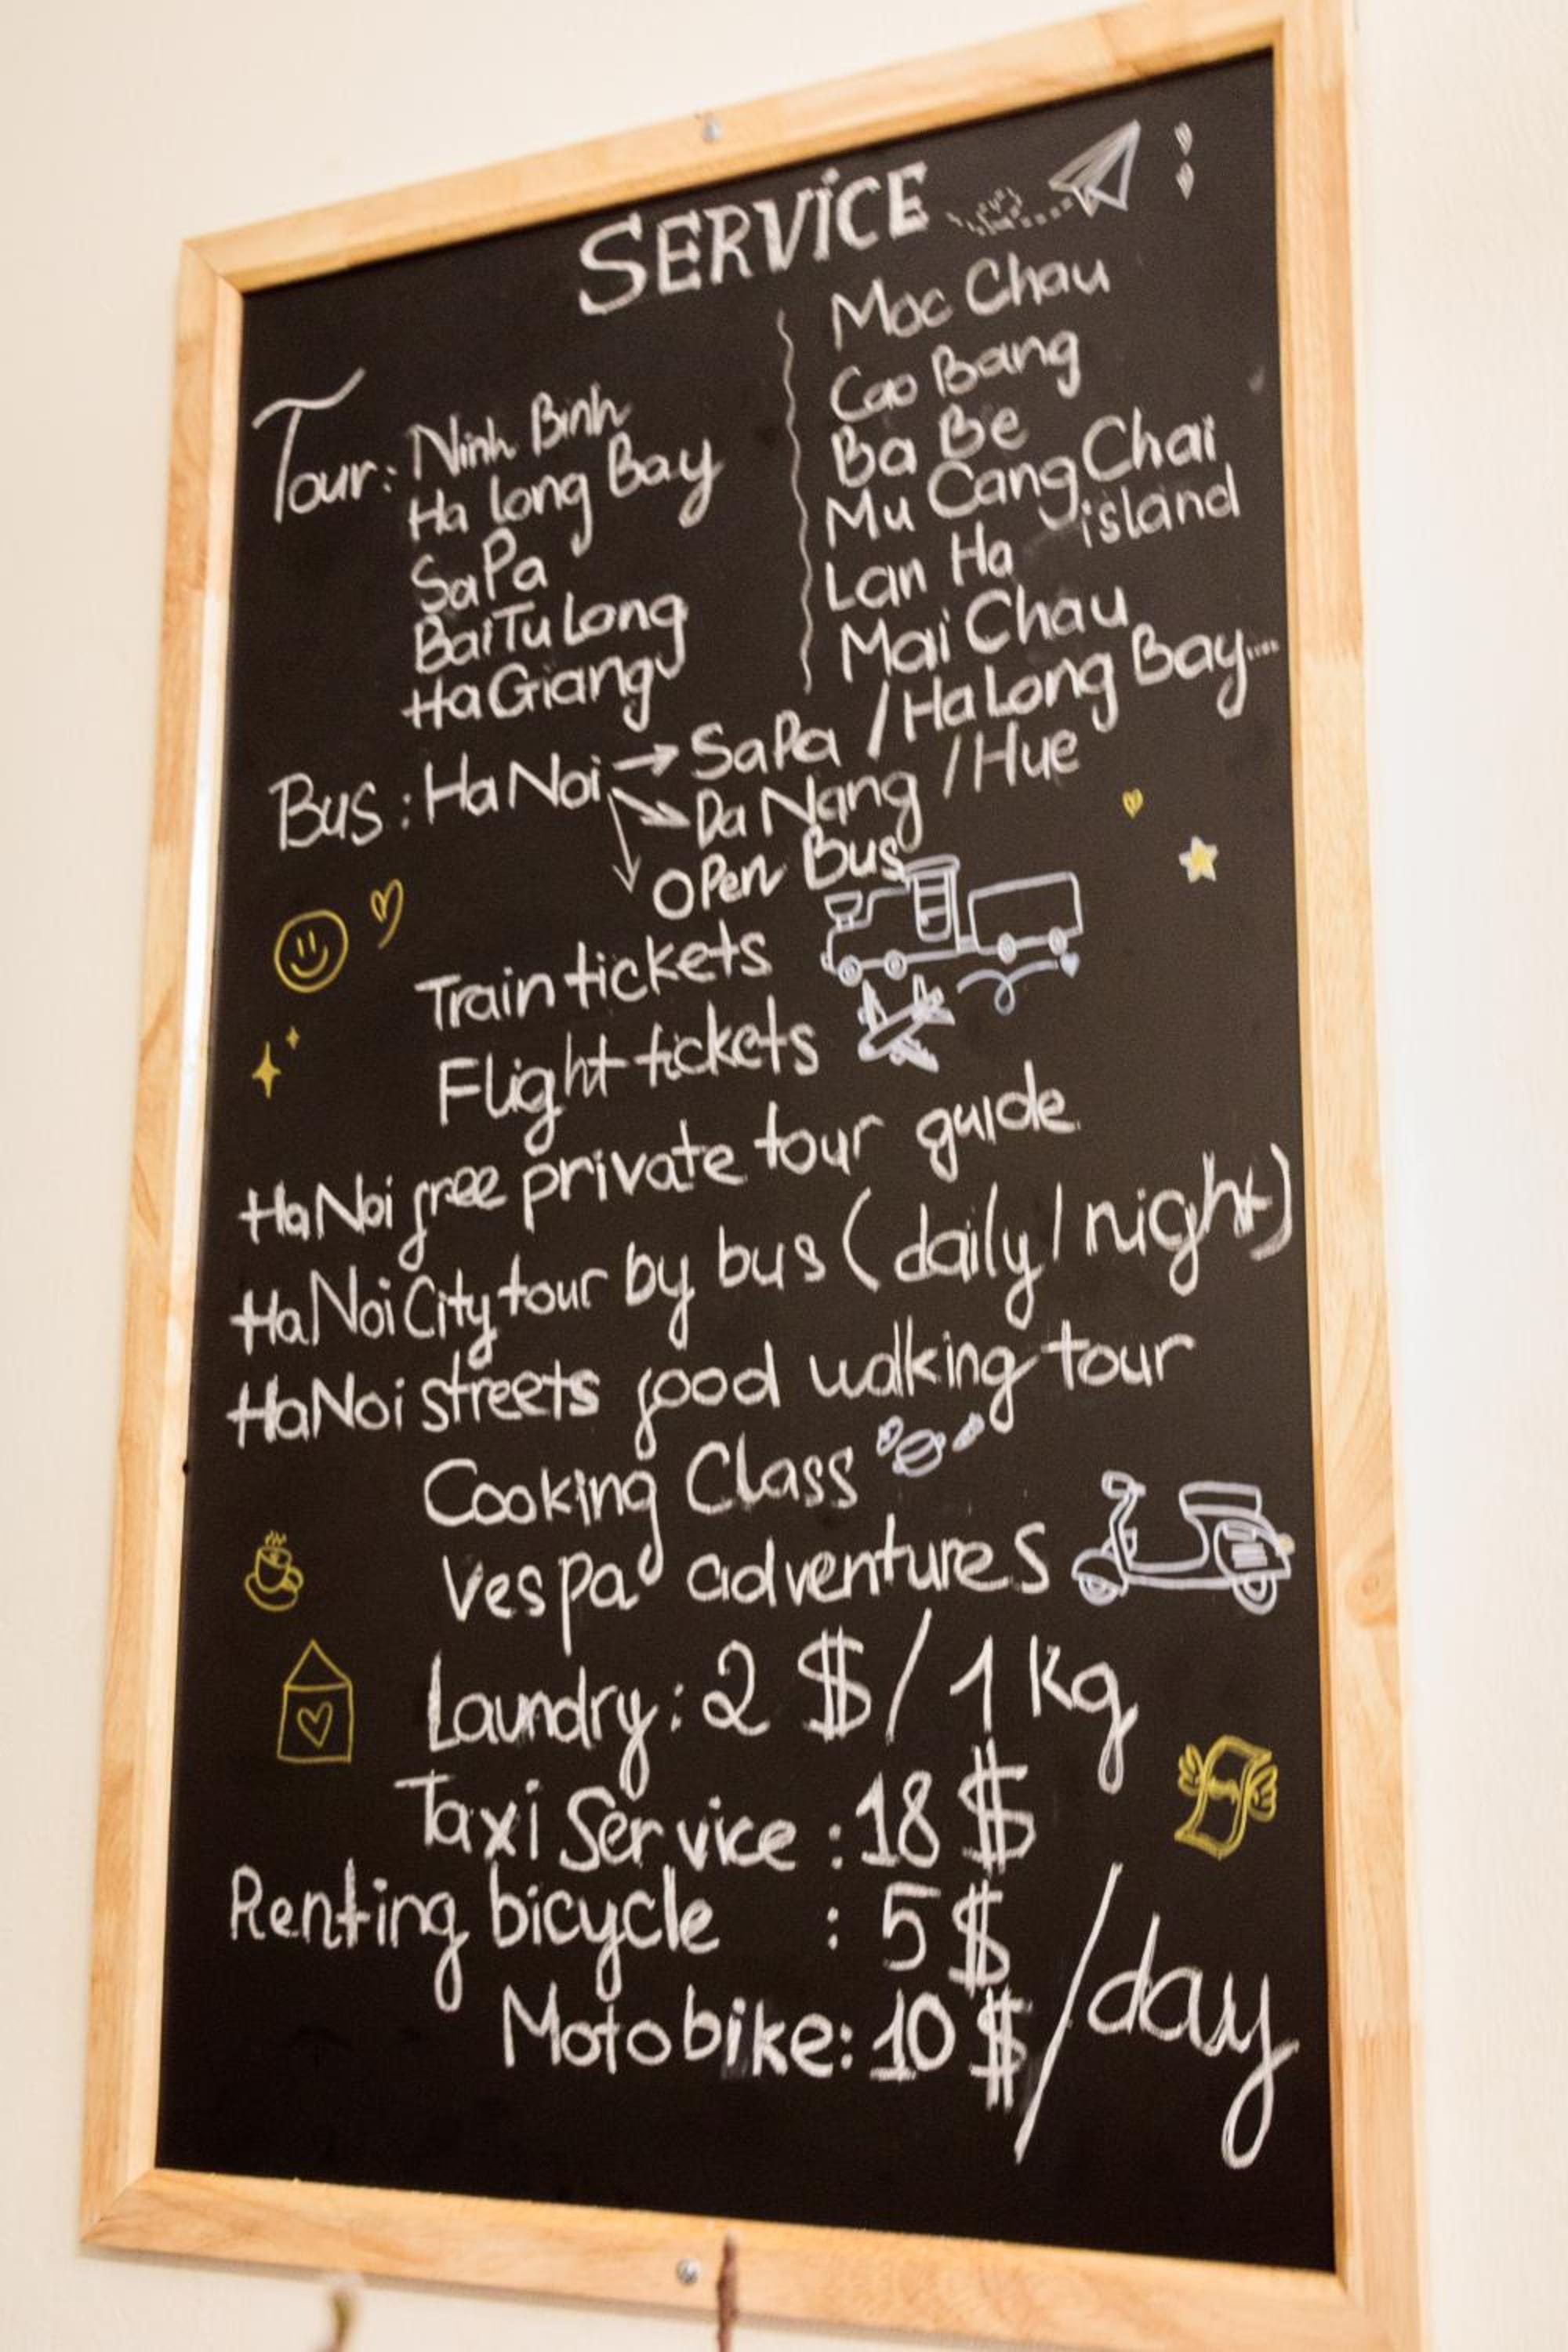 SERVICE
Tour: Ninh Binh
Ha long Bay
SaPa
BaiTuLong
HaGiang
Moc Chau
Cao Bang
Ba Be
Mu Cang Chai
Lan Ha island
Mai Chau
Bus: HaNoi → SaPa / HaLong Bay....
Da Nang / Hue
OPen Bus
Train tickets
Flight tickets
HaNoi free private tour guide
HaNoi City tour by bus (daily / night)
HaNoi streets food walking tour
Cooking Class
Vespa adventures
Laundry: 2 $/ 1 kg
Taxi Service: 18 $
Renting bicycle : 5 $
Motobike: 10 $ /day